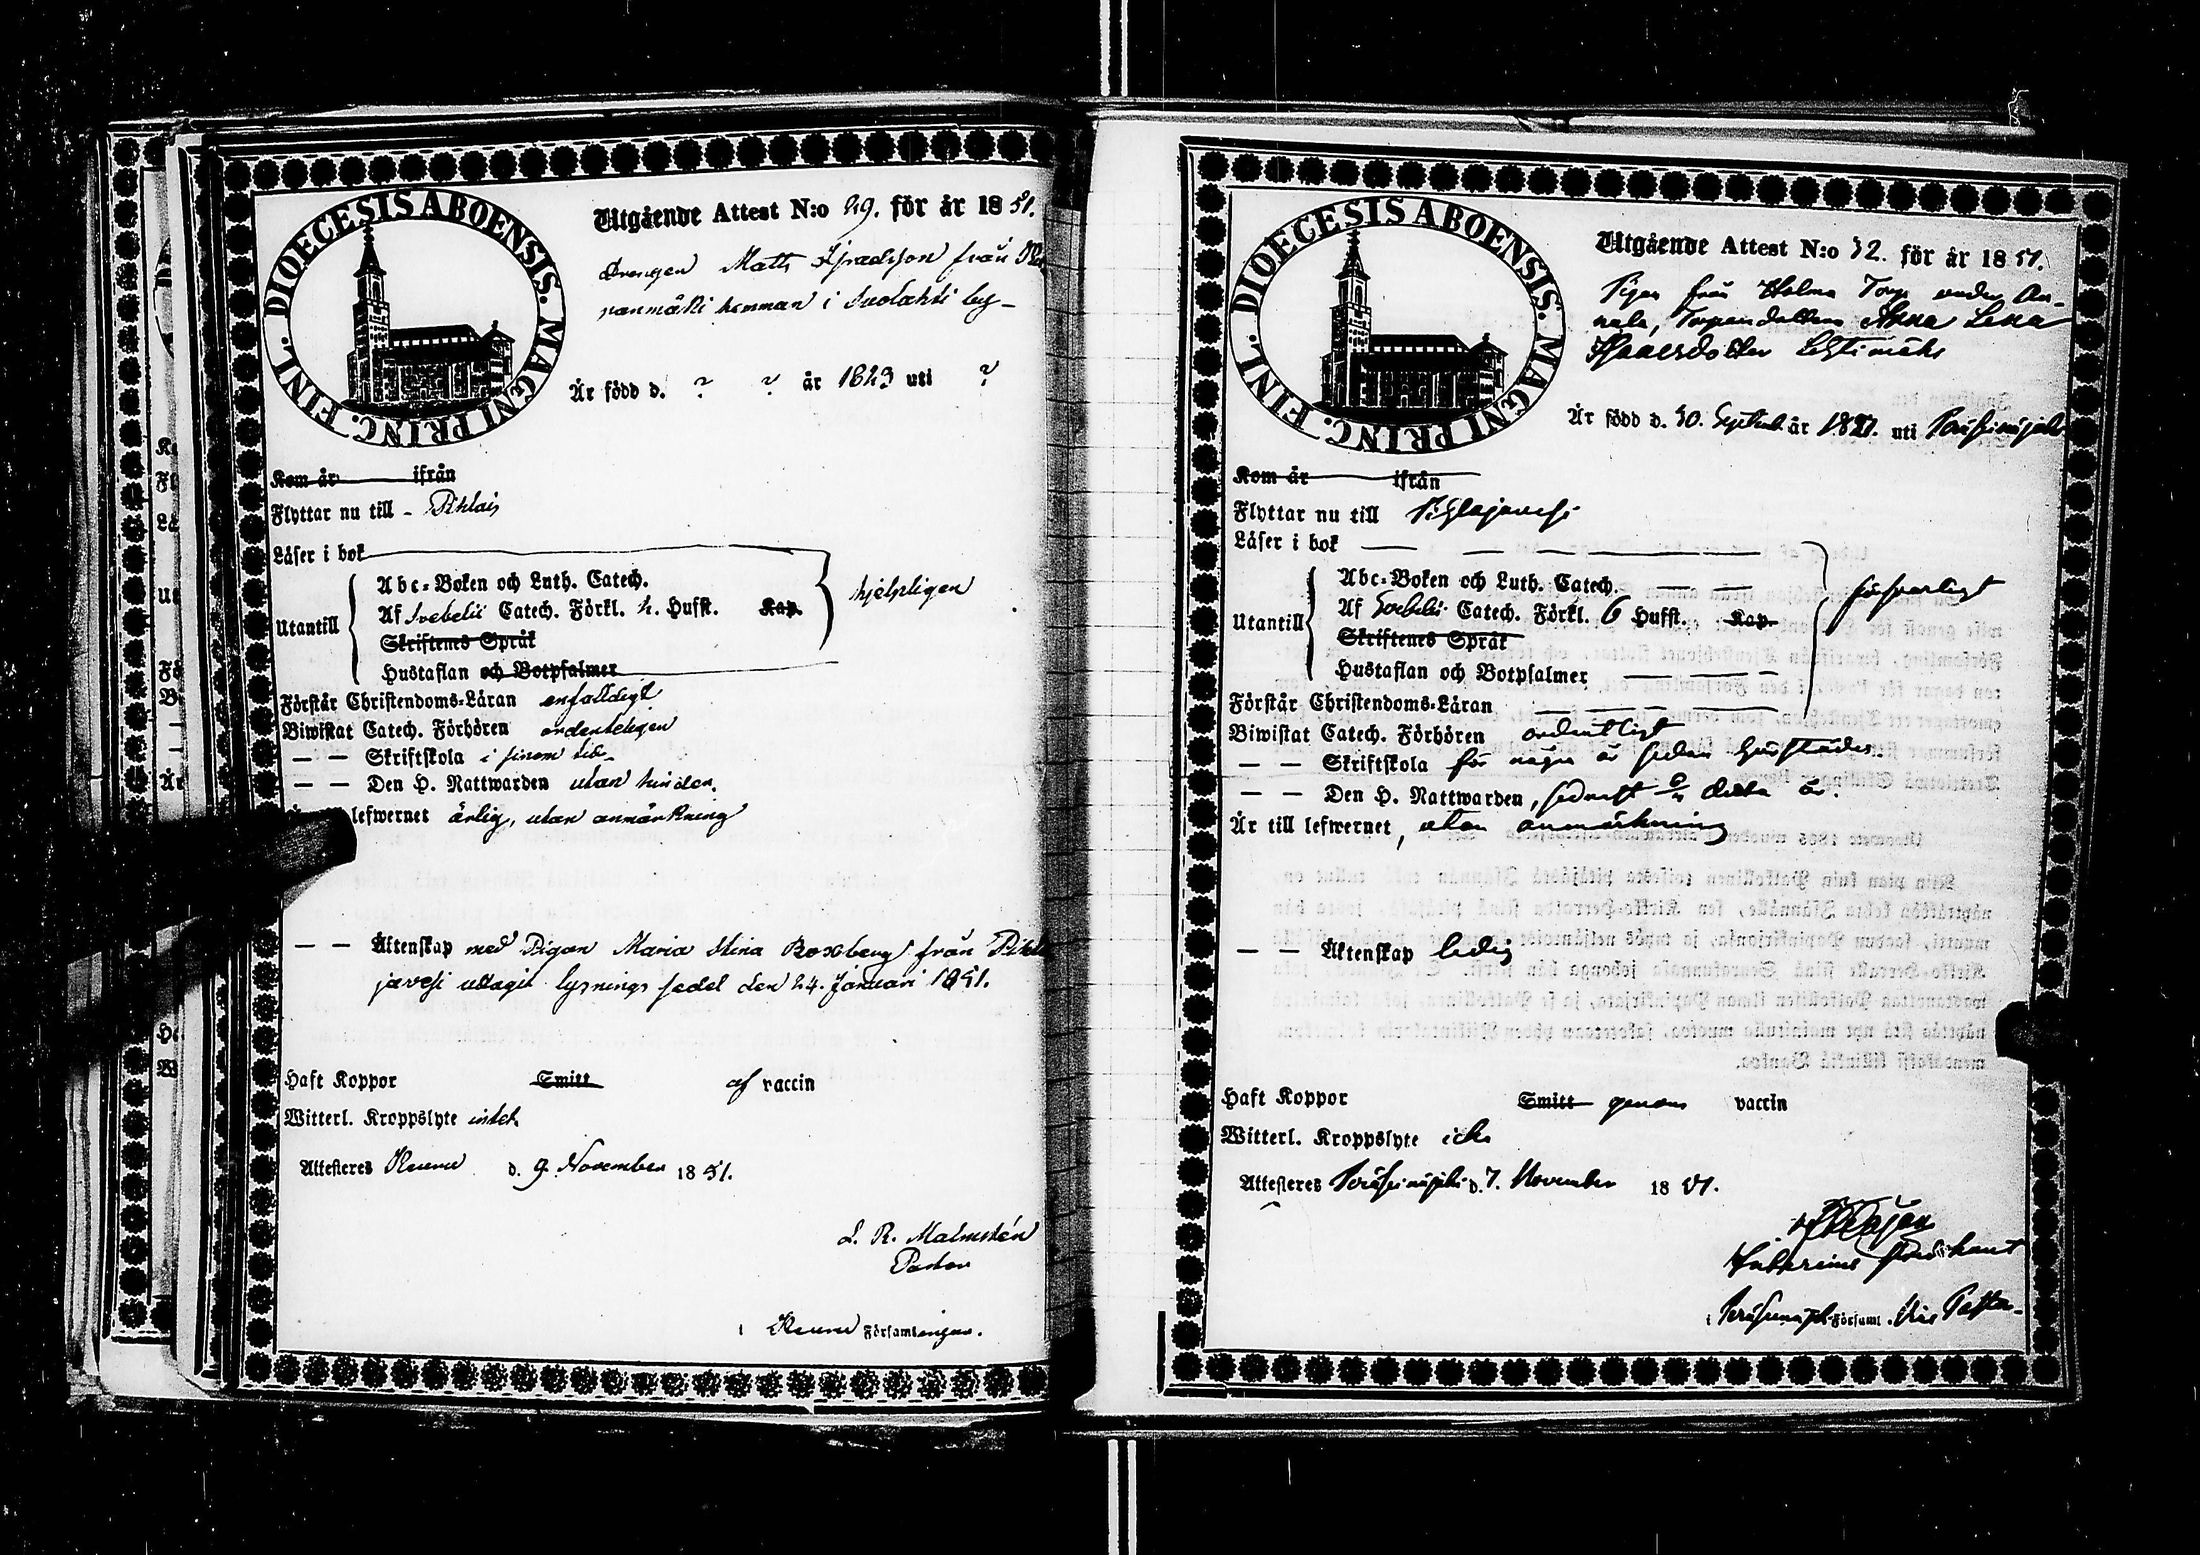 DIOECESIS ABOENSIS. MAGNI PRINC. FINL.
Utgående Attest N:o 29. för år 1851.
Drengen Matts Isracksson från
panmäki hemman i Suolahti by–
Är född d. ? ? år 1823 uti ?
Kom år ifrån
Flyttar nu till – Pihlais
Läser i bok
Utantill
Abc-Boken och Luth. Catech.
Af Svebelii Catech. Förkl. h. Hufst. Kap.
Skriftenes Språk
Hustaflan och Botpsalmer
hjelpligen
Förstår Christendoms-Läran enfaldigt
Biwistat Catech. Förhören ordenteligen
— — Skriftskola i sinom tid
— — Den H. Nattwarden utan hinder.
lefwernet ärlig, utan anmärkning
— — Äktenskap med Pigan Maria Stina Boxberg från
javesi uttagit lysnings sedel den 24. Januari 1851.
Haft Koppor Smitt af vaccin
Witterl. Kroppslyte intet
Attesteres Keuru d. 9 November 1851.
L. R. Malmstén
Pastor
i Keuru Församlingen.
DIOECESIS ABOENSIS. MAGNI PRINC. FINL.
Utgående Attest N:o 32. för år 1851.
Pigan från Holma Torp under An-
nala, Torparedottern Anna Lena
Är född d. 30. Septemb. år 1821. uti
Kom år ifrån
Flyttar nu till Pihlajavesi
Läser i bok — — — —
Utantill
Abc-Boken och Luth. Catech. — —
Af Svebelii Catech. Förkl. 6 Hufst. Kap.
Skriftenes Språk
Hustaflan och Botpsalmer — — —
försvarligt
Förstår Christendoms-Läran — — —
Biwistat Catech. Förhören ordentligt
— — Skriftskola för några år sedan härstädes
— — Den H. Nattwarden, sednast detta år.
Är till lefwernet, utan anmärkning
— — Äktenskap ledig
Haft Koppor Smitt genom vaccin
Witterl. Kroppslyte icke
Attesteres Peräseinäjoki d. 7. November 1851.
i Församl.